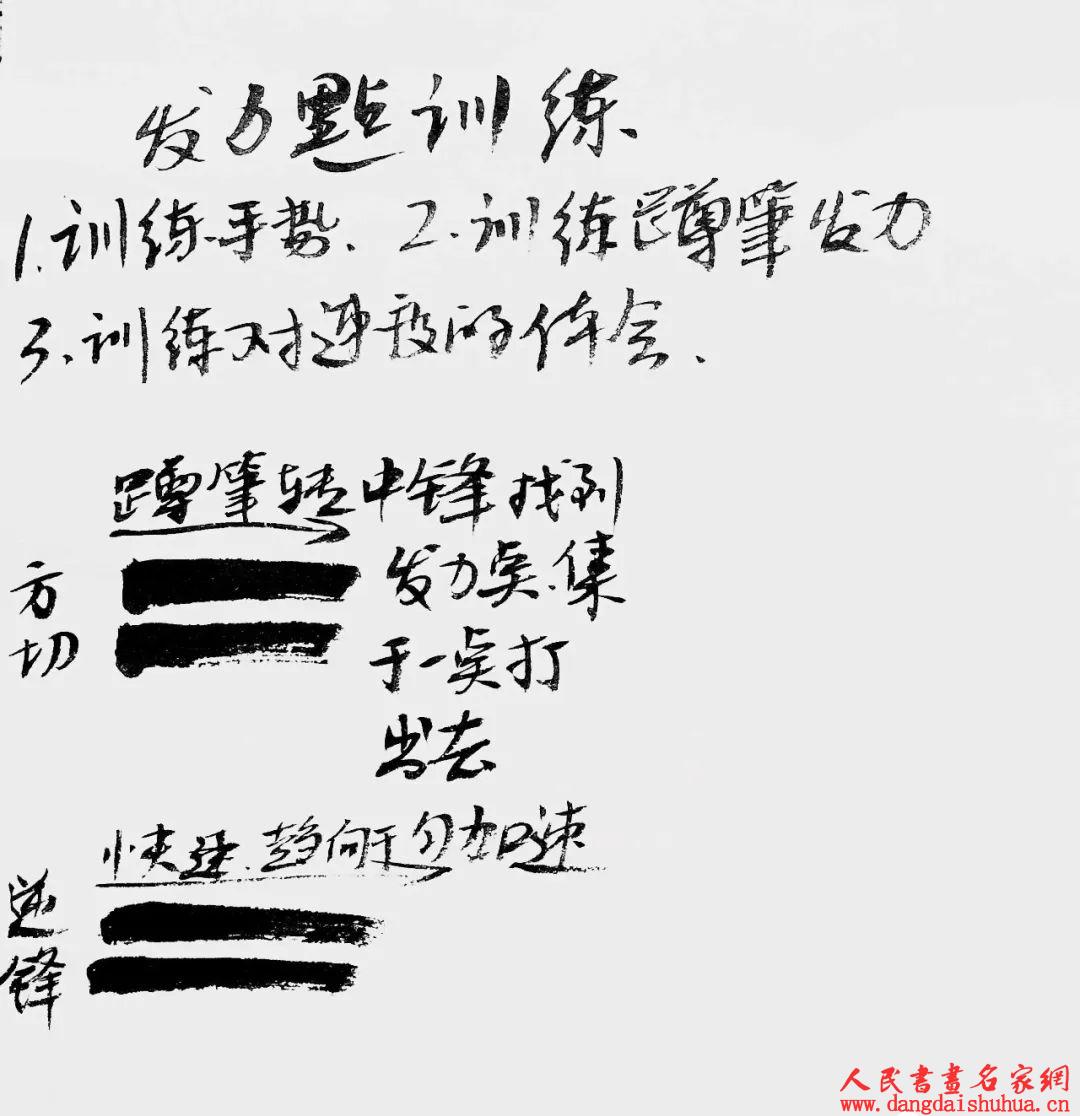 发力點训练
1.训练手势. 2.训练蹲筆发力
3.训练对速度的体会.
蹲筆转中锋找到
发力奌.集
于一奌打
出去
方切
快速.趋向于匀加速
逆锋
人民書畫名家網
www.dangdaishuhua.cn